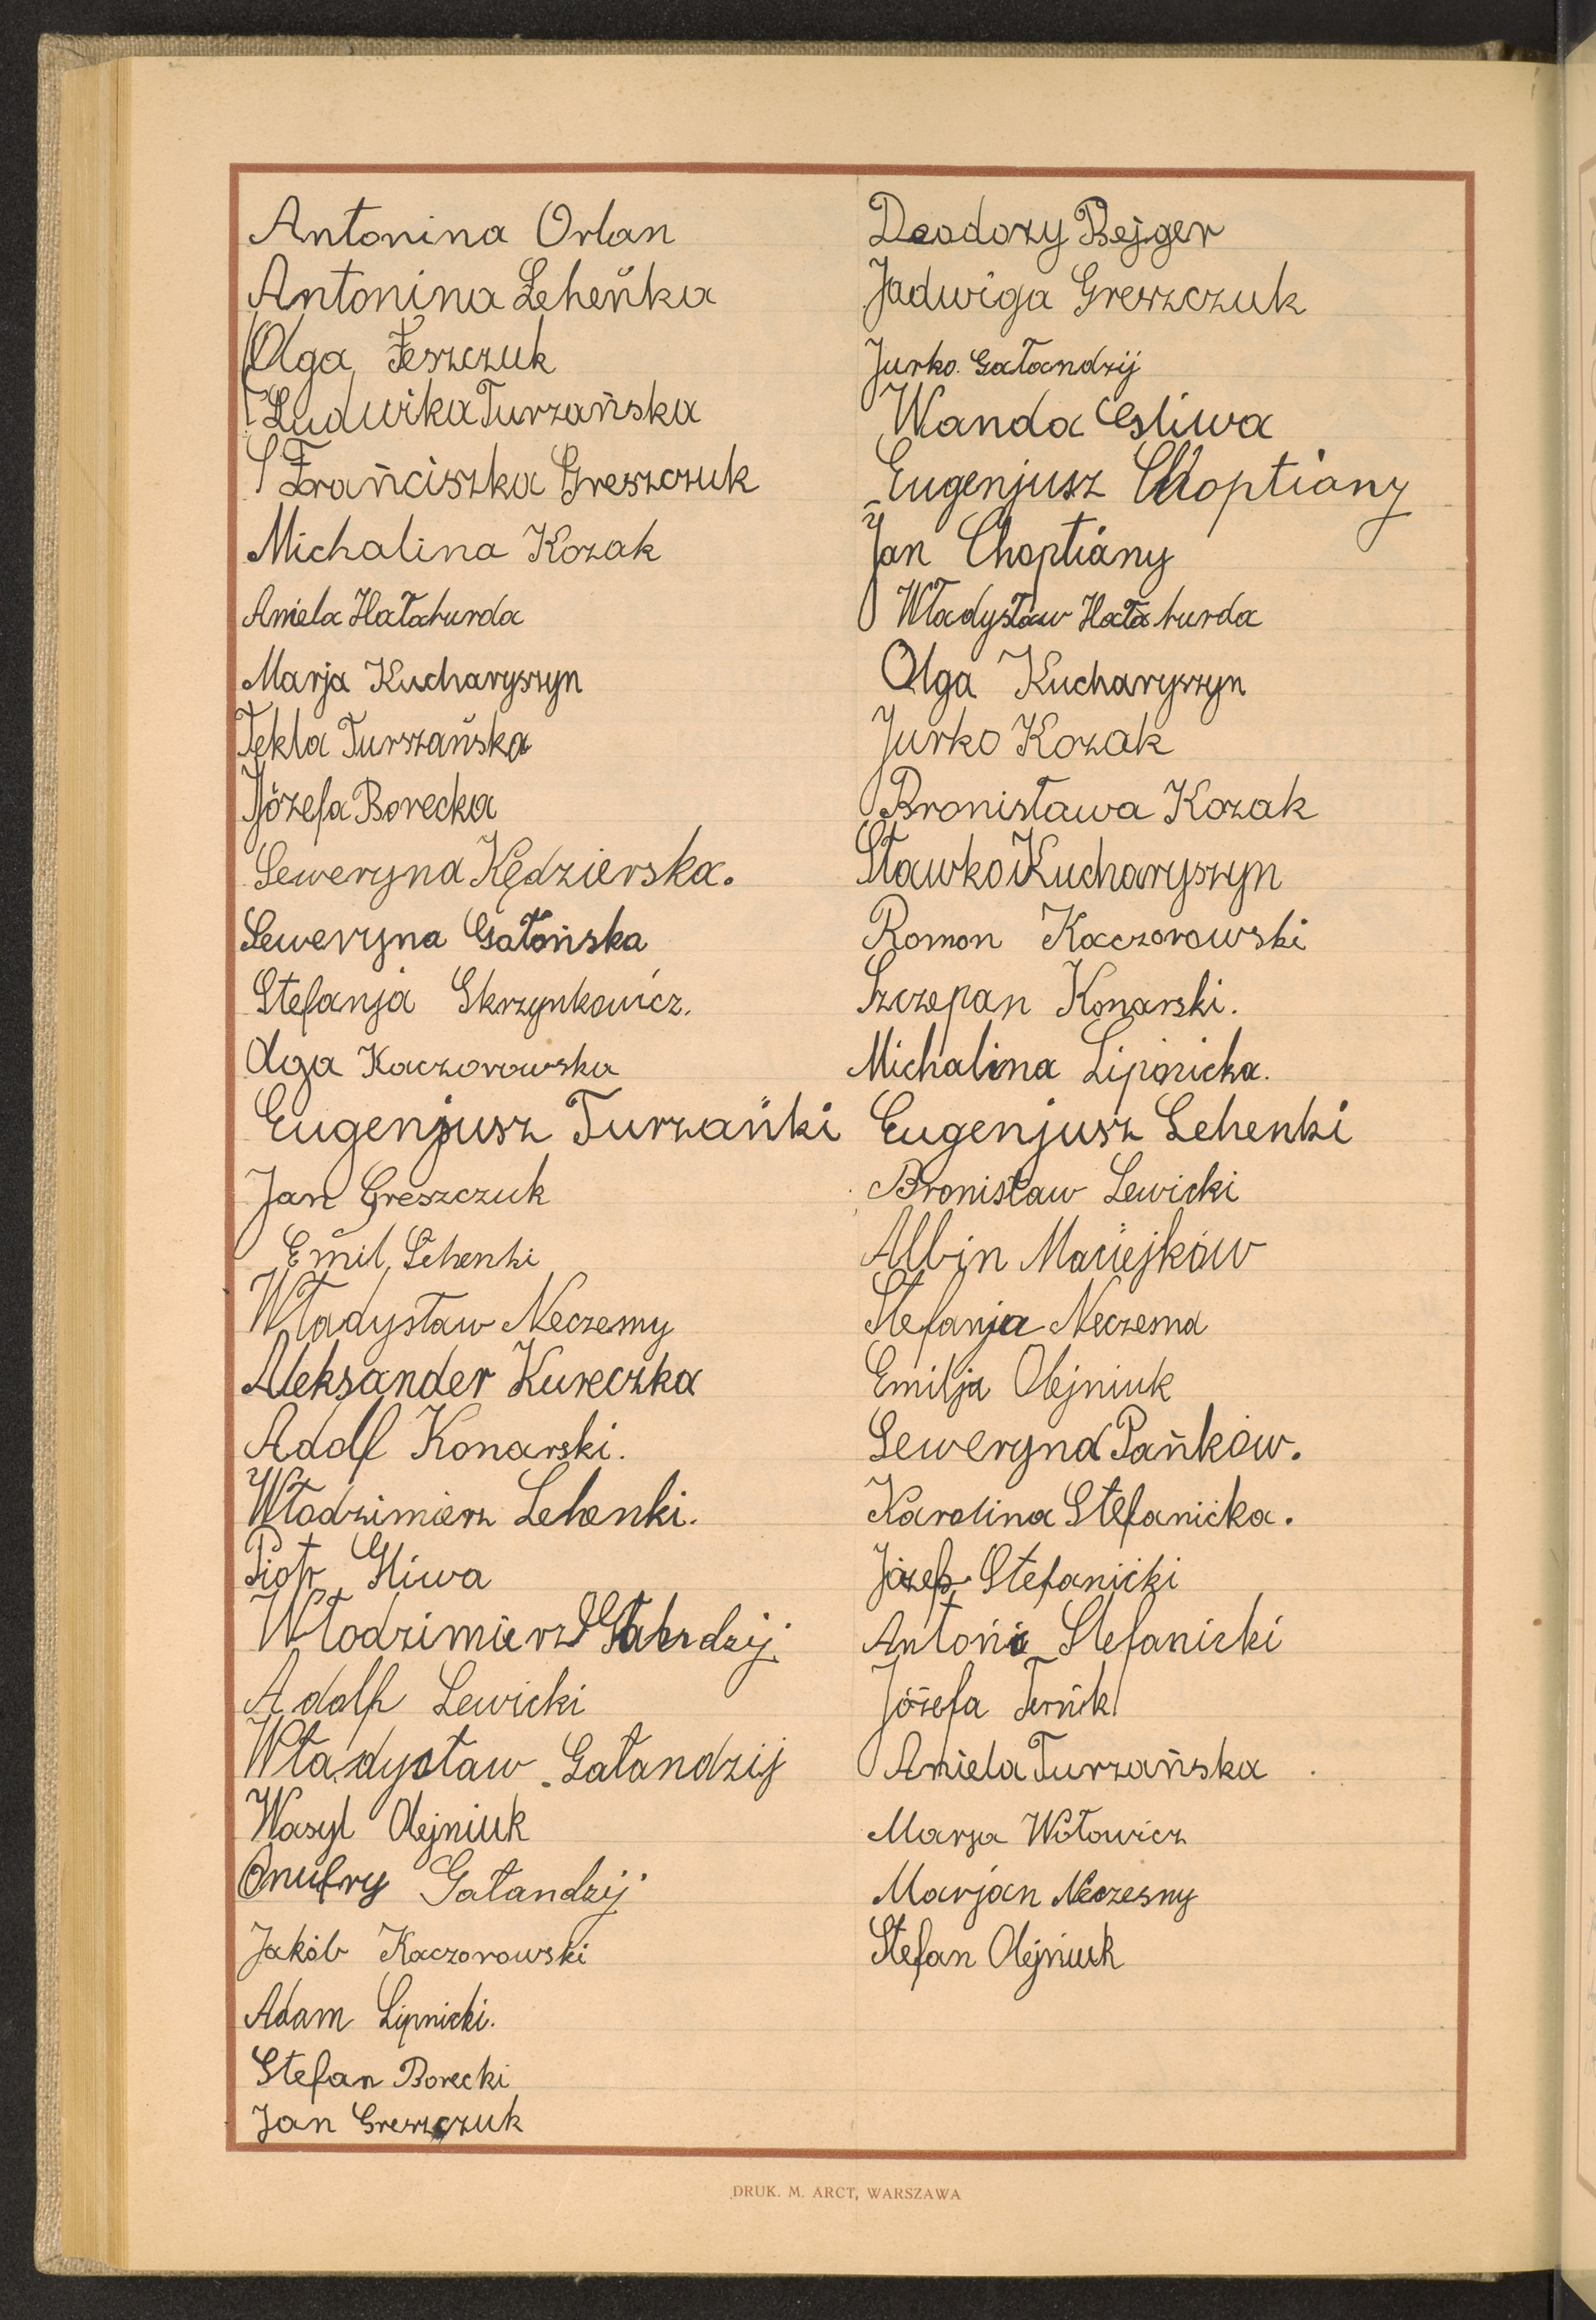 Antonina Orlan
Antonina Leheńka
Olga Feszczuk
Ludwika Turzańska
Frańciszka Greszczuk
Michalina Kozak
Aniela Hałaburda
Marja Kucharyszyn
Tekla Turszańska
Józefa Borecka
Seweryna Kędzierska.
Seweryna Gałońska
Stefanja Skrzynkowicz.
Olga Kaczorowska
Eugenjusz Turzańki
Jan Greszczuk
Emil Lehenki
Władysław Neczemy
Aleksander Kureczka
Adolf Konarski.
Włodzimierz Lehenki.
Piotr Sliwa
Włodzimierz
Adolf Lewicki
Władysław Gałandzij
Wasyl Olejniuk
Onufry Gałandzij
Jakób Kaczorowski
Adam Lipnicki.
Stefan Borecki
Jan Greszczuk
Deodozy Bejger
Jadwiga Greszczuk
Jurko. Gałandzij
Wanda Gsliwa
Eugenjusz Choptiany
Jan Choptiany
Władysław Hałaburda
Olga Kucharyszyn
Jurko Kozak
Bronisława Kozak
Sławko Kucharyszyn
Roman Kaczorowski
Szczepan Konarski.
Michalina Lipnicka.
Eugenjusz Lehenki
Bronisław Lewicki
Albin Maciejków
Stefanja Neczema
Emilja Olejniuk
Seweryna Pańków.
Karolina Stefanicka.
Józef Stefanicki
Antoni Stefanicki
Józefa Terńik
Aniela Turzańska
Marja Wołowicz
Marjan Neczesny
Stefan Olejniuk
DRUK. M. ARCT, WARSZAWA